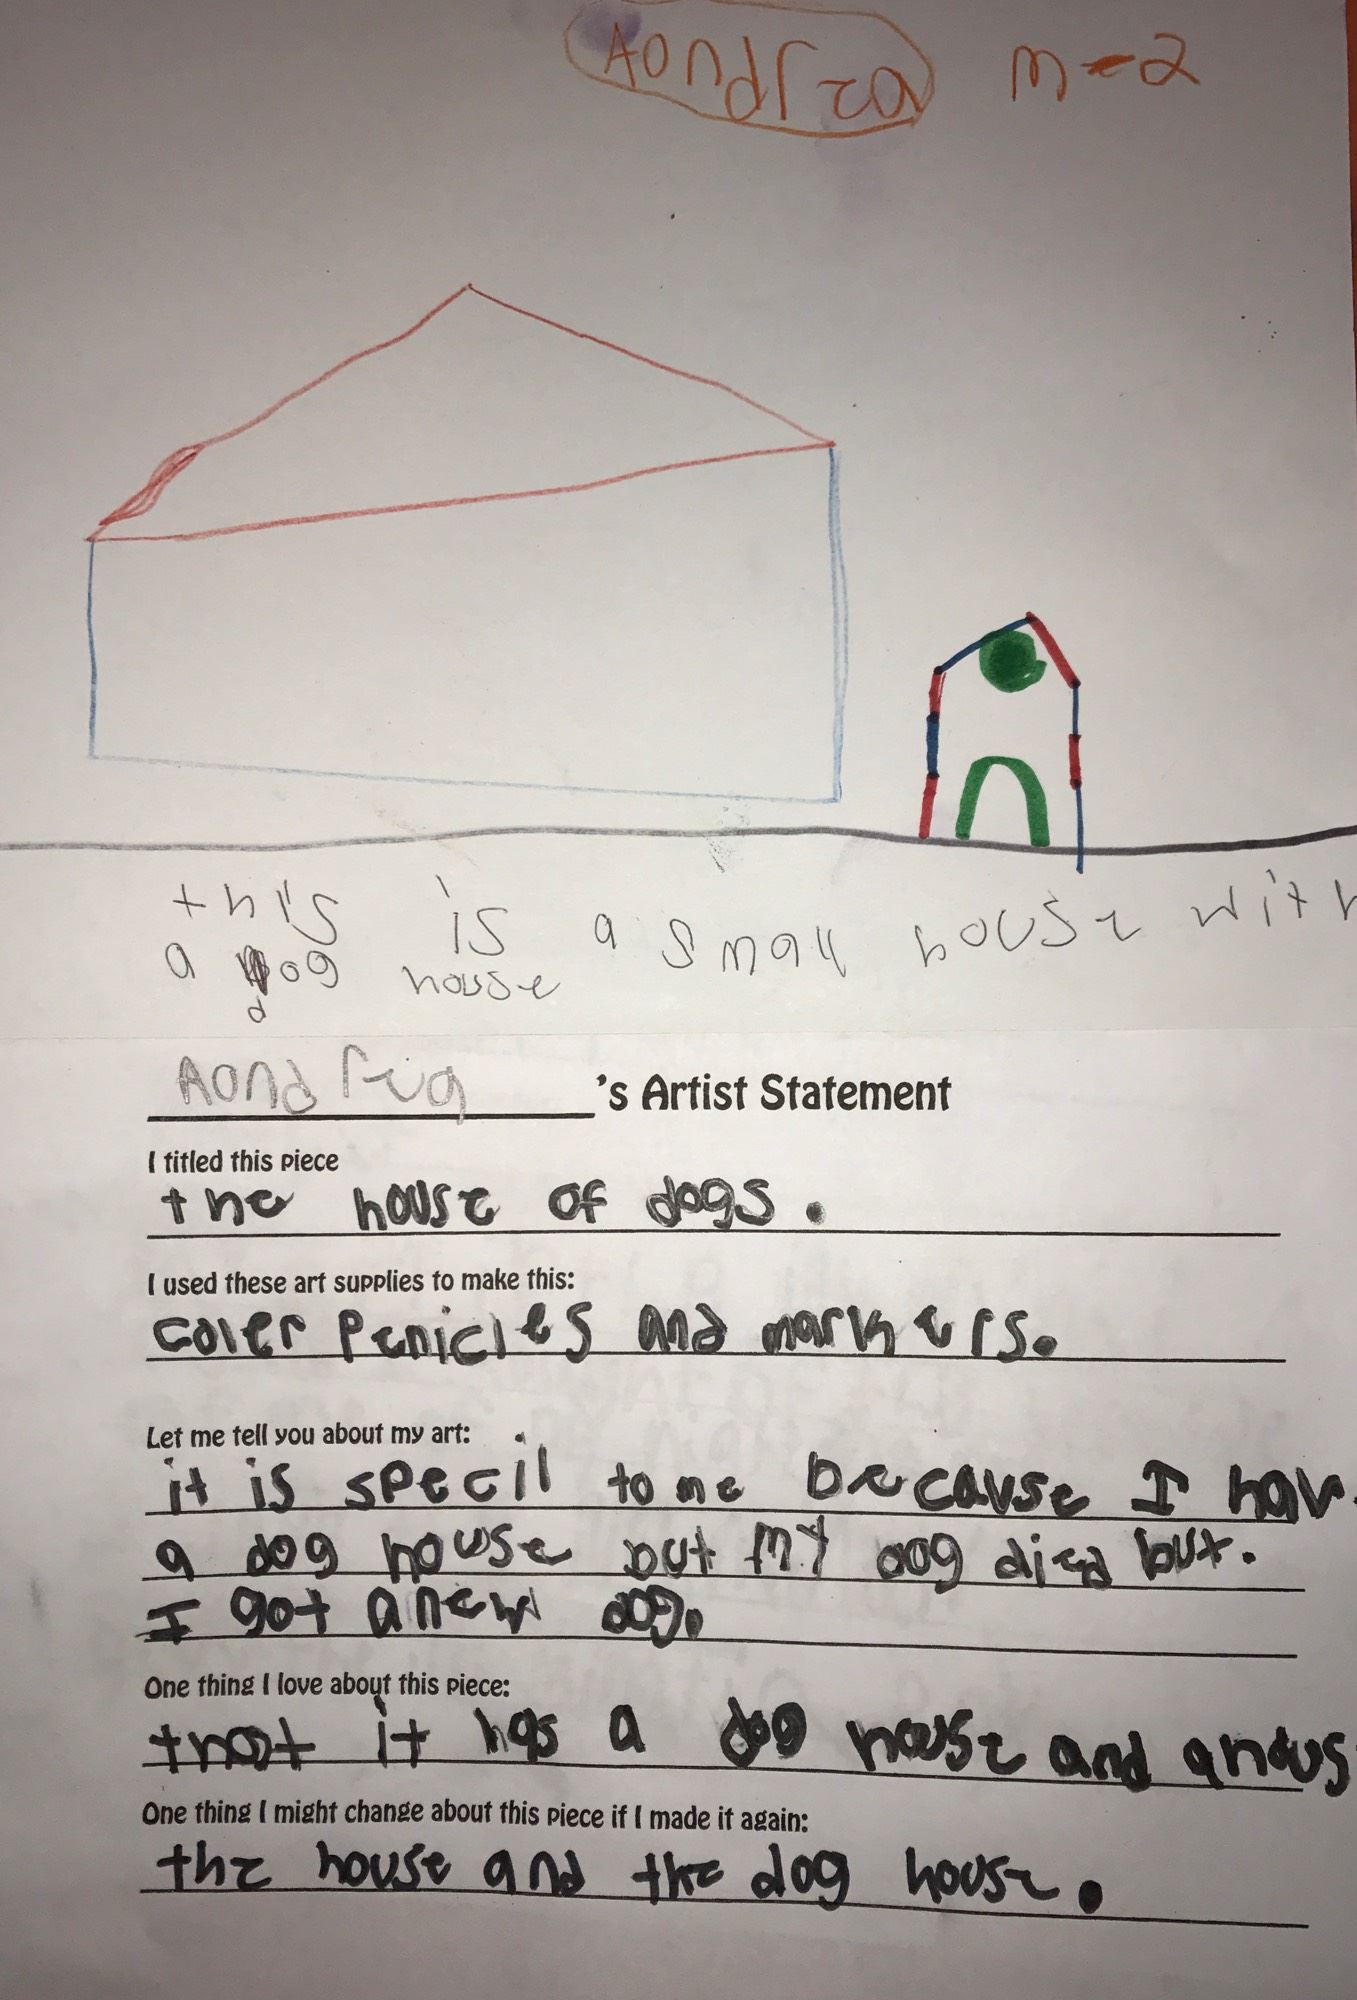 Aondrea m-2
this is a small house with
a dog house
Aondrea's Artist Statement
I titled this piece
the house of dogs.
I used these art supplies to make this:
coler penicles and markers.
Let me tell you about my art:
it is specil to me because I hav
a dog house but my dog died but.
I got a new dog.
One thing I love about this piece:
that it has a dog house and
One thing I might change about this piece if I made it again:
the house and the dog house.